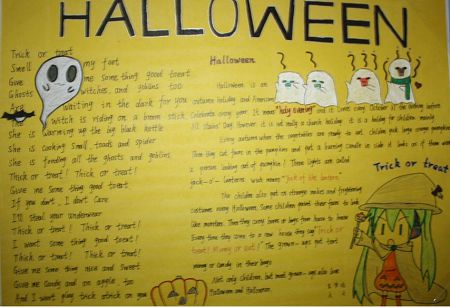 HALLOWEEN
Trick or treat
Smell my feet
Give me some thing good treat
Ghosts witches and goblins too
Are waiting in the dark for you
witch is riding on a broom stick
She is warming up the big black kettle
She is cooking Small toads and spider
She is feeding all the ghosts and goblins
Thick or treat! Thick or treat!
Give me some thing good toreat
If you don't, I don't care
I'll steal your underwear
Thick or treat! Thick or treat!
I want some thing good toreat
Thick or treat! Thick or treat!
Give me some thing nice and sweet
Give me Candy and an apple too
And I won't play trick at rick on you
Halloween
Halloween is an
autumn holiday and American
Celebrate every year. It means "holy evening" and it comes every October 31, the evening before
all Saints' Day. However, it is not really a church holiday. it is a holiday for children mainly
Every autumn when the vegetables are ready to eat, children pick large orange pumpkins
Then they cut faces in the pumpkins and put a burning candle in side it looks as if there were
a person looking out of pumpkin! These lights are called
jack-o'-lanterns, wich means "Jack of the lantern"
The children also put on strange masks and frightening
costumes every Halloween. Some children paint their faces to look
like monsters. Then they carry boxes or bags from house to house
Every time they come to a new house they say "Trick or
treat! Money or eat!" The grown-ups put treat
money or candy in their bags
Not only children, but most grown-ups also love
Halloween and Halloween
Trick or treat